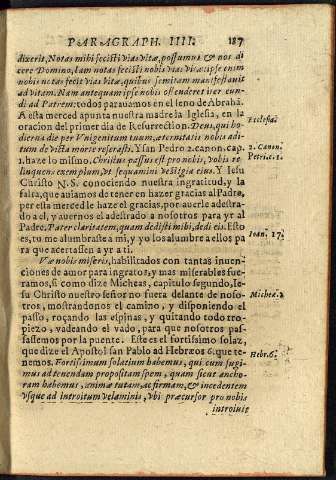 PARAGRAPH. IIII. 187
dixerit, Notas mihi fecisti vias vitæ, possumus & nos di
cere Domino, Iam notas fecisti nobis vias vitæ: ipse enim
nobis notas fecit vias vitæ, quibus semitam manifestauit
ad vitam. Nam antequam ipse nobis ostenderet iter eun
di ad Patrem: todos parauamos en el seno de Abrahã.
A esta merced apunta nuestra madre la Iglesia, en la
oracion del primer dia de Resurreccion. Deus, qui ho
dierna die per Vnigenitum tuum, æternitatis nobis adi
tum de victa morte reserasti. Y san Pedro 2. canon. cap.
1. haze lo mismo. Christus passus est pro nobis, vobis re
linquens exemplum, vt sequamini vestigia eius. Y Iesu
Christo N. S. conociendo nuestra ingratitud, y la
falsa, que auiamos de tener en hazer gracias al Padre,
per esta merced le haze el gracias, por auerle adestra
do a el, y auernos el adestrado a nosotros para yr al
Padre. Pater claritatem, quam dedisti mihi, dedi eis. Esto
es, tu me alumbraste a mi, y yo los alumbre a ellos pa
ra que acertassen a yr a ti.
Væ nobis miseris, habilitados con tantas inuen-
ciones de amor para ingratos, y mas miserables fue-
ramos, si como dize Micheas, capitulo segundo, Ie-
su Christo nuestro señor no fuera delante de noso-
tros, mostrandonos el camino, y disponiendo el
passo, roçando las espinas, y quitando todo tro-
piezo, vadeando el vado, para que nosotros pas-
sassemos por la puente. Este es el fortissimo solaz,
que dize el Apostol san Pablo ad Hebræos 6. que te-
nemos. Fortissimum solatium habemus, qui confugi-
mus ad tenendam propositam spem, quam sicut ancho-
ram habemus, animæ tutam, ac firmam, & incedentem
vsque ad introitum velaminis, vbi præcursor pro nobis
introiuit
Ecclesia.
2. Canon.
Petri. c. 1.
Ioan. 17.
Micheæ. 2
Hebr. 6.